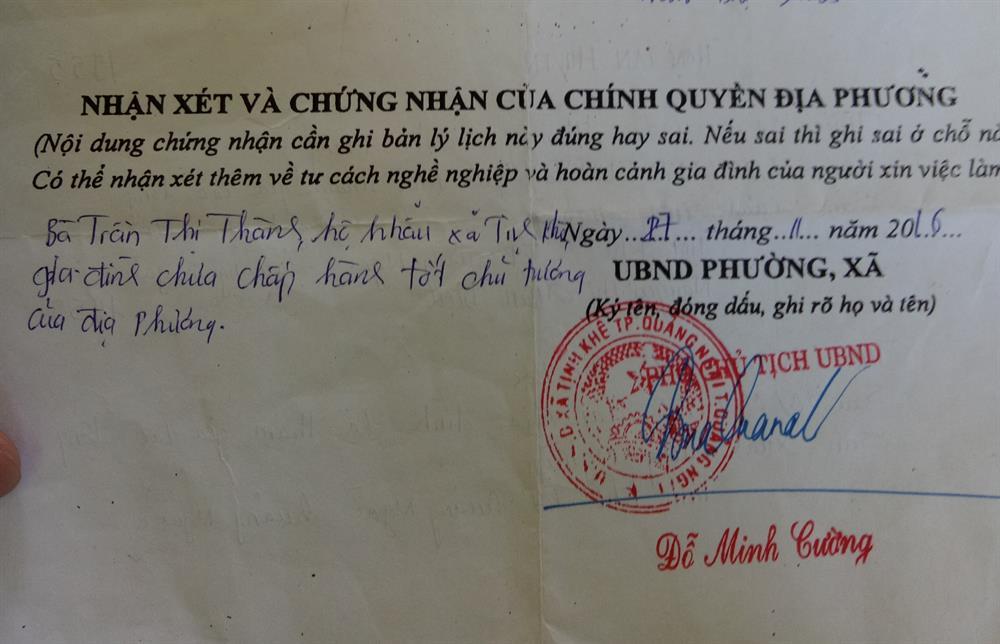 NHẬN XÉT VÀ CHỨNG NHẬN CỦA CHÍNH QUYỀN ĐỊA PHƯƠNG
(Nội dung chứng nhận cần ghi bản lý lịch này đúng hay sai. Nếu sai thì ghi sai ở chỗ nà
Có thể nhận xét thêm về tư cách nghề nghiệp và hoàn cảnh gia đình của người xin việc làm
Bà Trần Thị Thành, hộ khẩu xã Tịnh Khê,
gia đình chưa chấp hành tốt chủ trương
của địa phương.
Ngày..27... tháng..11... năm 2016...
UBND PHƯỜNG, XÃ
(Ký tên, đóng dấu, ghi rõ họ và tên)
U.B.N.D XÃ TỊNH KHÊ TP. QUẢNG NGÃI T. QUẢNG NGÃI
PHÓ CHỦ TỊCH UBND
Đỗ Minh Cường